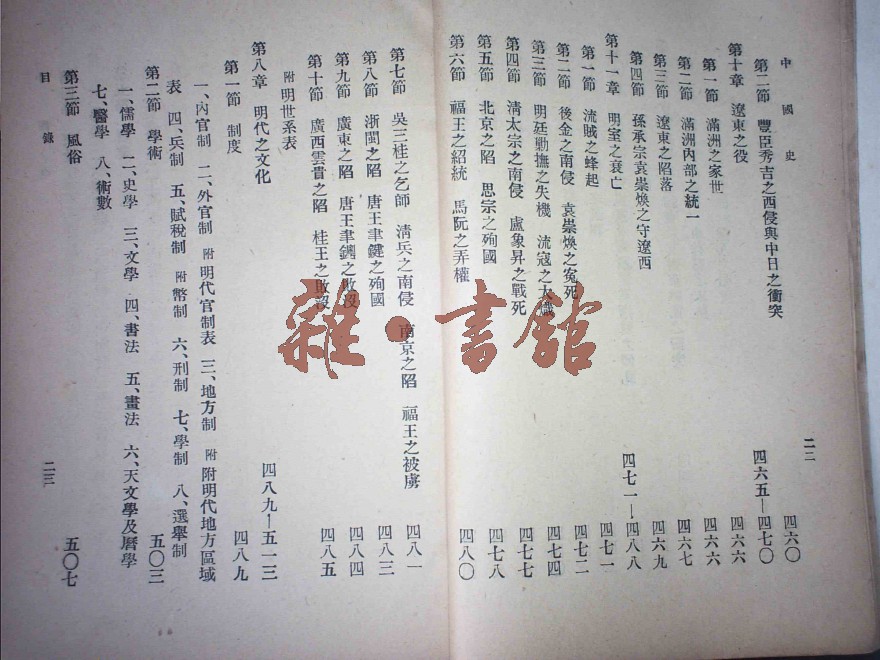 中國史
二二
第二節 豐臣秀吉之西侵與中日之衝突 四六〇
第十章 遼東之役 四六五—四七〇
第一節 滿洲之家世 四六六
第二節 滿洲內部之統一 四六七
第三節 遼東之陷落 四六九
第四節 孫承宗袁崇煥之守遼西
第十一章 明室之衰亡 四七一—四八八
第一節 流賊之蜂起 四七一
第二節 後金之南侵 袁崇煥之寃死 四七二
第三節 明廷勦撫之失機 流寇之大熾 四七四
第四節 清太宗之南侵 盧象昇之戰死 四七七
第五節 北京之陷 思宗之殉國 四七八
第六節 福王之紹統 馬阮之弄權 四八〇
第七節 吳三桂之乞師 清兵之南侵 南京之陷 福王之被虜 四八一
第八節 浙閩之陷 唐王聿鍵之殉國 四八三
第九節 廣東之陷 唐王聿𨮁之敗沒 四八四
第十節 廣西雲貴之陷 桂王之敗沒 四八五
附 明世系表
第八章 明代之文化 四八九—五一三
第一節 制度 四八九
一、內官制 二、外官制 附明代官制表 三、地方制 附 附明代地方區域
表 四、兵制 五、賦稅制 附幣制 六、刑制 七、學制 八、選舉制
第二節 學術 五〇三
一、儒學 二、史學 三、文學 四、書法 五、畫法 六、天文學及曆學
七、醫學 八、術數
第三節 風俗 五〇七
目錄
二三
雜·書館